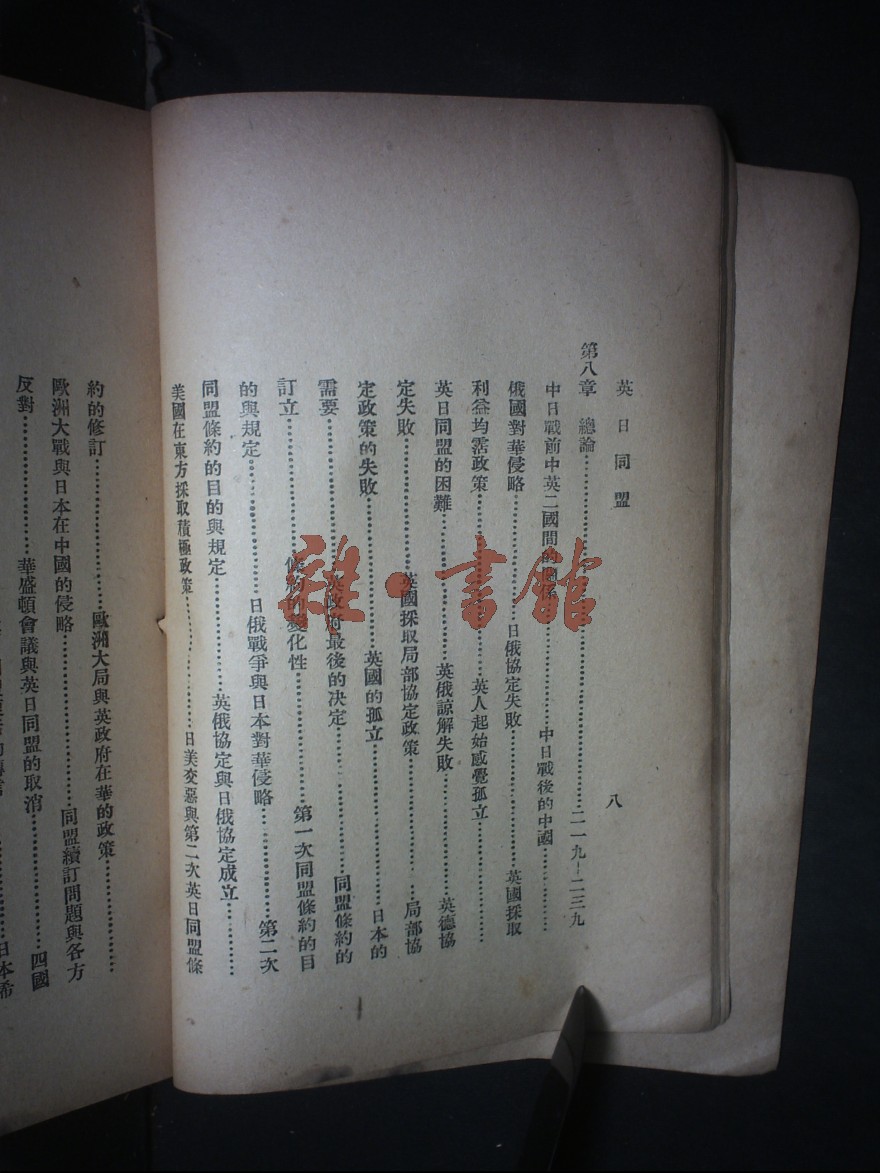 英日同盟
八
第八章 總論……二一九－二三九
中日戰前中英二國間的關係……中日戰後的中國……
俄國對華侵略……日俄協定失敗……英國採取
利益均霑政策……英人起始感覺孤立……
英日同盟的困難……英俄諒解失敗……英德協
定失敗……英國採取局部協定政策……局部協
定政策的失敗……英國的孤立……日本的
需要……英政府最後的決定……同盟條約的
訂立……條約的變化性……第一次同盟條約的目
的與規定……日俄戰爭與日本對華侵略……第二次
同盟條約的目的與規定……英俄協定與日俄協定成立……
美國在東方採取積極政策……日美交惡與第二次英日同盟條
約的修訂……歐洲大局與英政府在華的政策……
歐洲大戰與日本在中國的侵略……同盟續訂問題與各方
反對……華盛頓會議與英日同盟的取消……四國
日本希
雅·書館